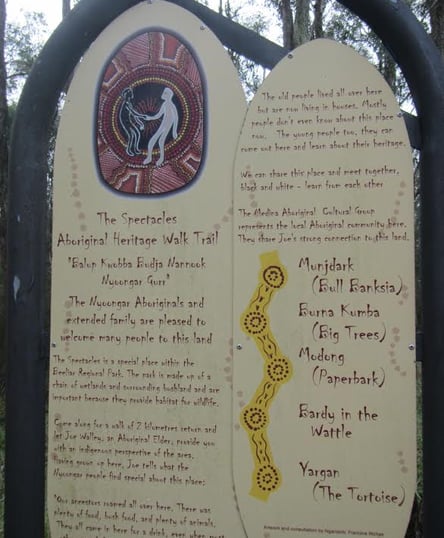 The Spectacles
Aboriginal Heritage Walk Trail
"Balup Kwobba Budja Nannook
Nyoongar Gurr"
The Nyoongar Aboriginals and
extended family are pleased to
welcome many people to this land
The Spectacles is a special place within the
Beeliar Regional Park. The park is made up of a
chain of wetlands and surrounding bushland and are
important because they provide habitat for wildlife.
Come along for a walk of 2 kilometres return and
let Joe Walley, an Aboriginal Elder, provide you
with an indigenous perspective of the area.
Having grown up here, Joe tells what the
Nyoongar people find special about this place:
"Our ancestors roamed all over here. There was
plenty of food, bush food, and plenty of animals.
They all came in here for a drink, even when most
The old people lived all over here
but are now living in houses. Mostly
people don't even know about this place
now. The young people too, they can
come out here and learn about their heritage.
We can share this place and meet together,
black and white - learn from each other
The Medina Aboriginal Cultural Group
represents the local Aboriginal community here.
They share Joe's strong connection to this land.
Munjdark
(Bull Banksia)
Burna Kumba
(Big Trees)
Modong
(Paperbark)
Bardy in the
Wattle
Yargan
(The Tortoise)
Artwork and consultation by